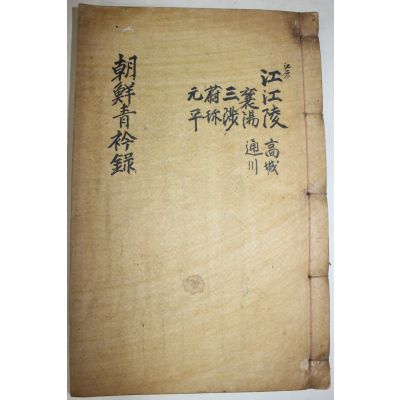 江江陵 高城
襄陽 通川
三涉
蔚珎
元平
朝鮮青衿錄